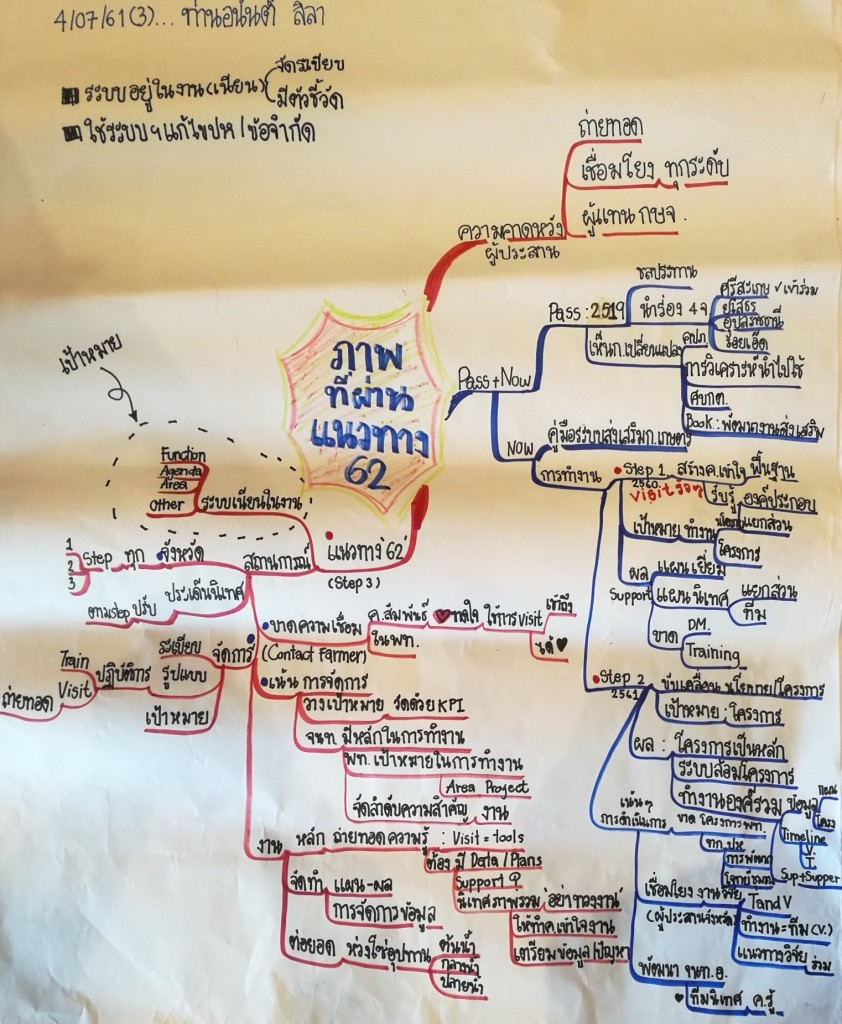 4/07/61(3)... ท่านอนันต์ ลิลา
ระบบอยู่ในงาน(เนียน)
จัดระเบียบ
มีตัวชี้วัด
ใช้ระบบฯแก้ไขปห/ข้อจำกัด
ถ่ายทอด
เชื่อมโยง ทุกระดับ
ผู้แทน กษจ.
ความคาดหวัง
ผู้ประสาน
ภาพ
ที่ผ่าน
แนวทาง
62
Pass+Now
Pass : 2519
ชลประทาน
นำร่อง 4จ
ศรีสะเกษ
เข้าร่วม
ยโสธร
อุบลราชธานี
ร้อยเอ็ด
เห็นก.เปลี่ยนแปลง
การวิเคราะห์นำไปใช้
ศบกต.
Book : พัฒนางานส่งเสริม
Now
คู่มือระบบส่งเสริมก.เกษตร
การทำงาน
Step 1
2560
สร้างค.เข้าใจ พื้นฐาน
รับรู้ องค์ประกอบ
เป้าหมาย ทำงาน
แยกส่วน
โครงการ
ผล
Support
แผนเยี่ยม
แผนนิเทศ
แยกส่วน
ทีม
ขาด
DM.
Training
Step 2
2561
ขับเคลื่อน นโยบาย/โครงการ
เป้าหมาย : โครงการ
ผล : โครงการเป็นหลัก
ระบบล้อมโครงการ
ทำงานองค์รวม
ข้อมูล
Timeline
V.
T
Sup+Supper
เน้นๆ
การดำเนินการ
ขาด โครงการพท.
การพัฒนา
เชื่อมโยง งานวิจัย
(ผู้ประสานจังหวัด)
TandV
ทำงาน = ทีม (V.)
แนวทางวิจัย
ร่วม
พัฒนา จนท.อ.
ทีมนิเทศ ค.รู้
เป้าหมาย
Function
Agenda
Area
Other
ระบบเนียนในงาน
แนวทาง 62
(Step 3)
สถานการณ์
1
2
3
Step ทุก จังหวัด
ตามstep ปรับ ประเด็นนิเทศ
ขาดความเชื่อม
(Contact Farmer)
ค.สัมพันธ์
ในพท.
ให้การVisit
เข้าถึง
ได้
จัดการ
ระเบียบ
รูปแบบ
ปฏิบัติการ
Train
Visit
ถ่ายทอด
เป้าหมาย
เน้น การจัดการ
วางเป้าหมาย วัดด้วย KPI
จนท. มีหลักในการทำงาน
พท. เป้าหมายในการทำงาน
Area Project
จัดลำดับความสำคัญ งาน
งาน
หลัก ถ่ายทอดความรู้ : Visit = tools
ต้อง มี Data/Plans
Support ?
นิเทศภาพรวม "อย่าทวงงาน"
ให้ทำค.เข้าใจงาน
เตรียมข้อมูล/ปัญหา
จัดทำ แผน-ผล
การจัดการข้อมูล
ต่อยอด ห่วงโซ่อุปทาน
ต้นน้ำ
กลางน้ำ
ปลายน้ำ